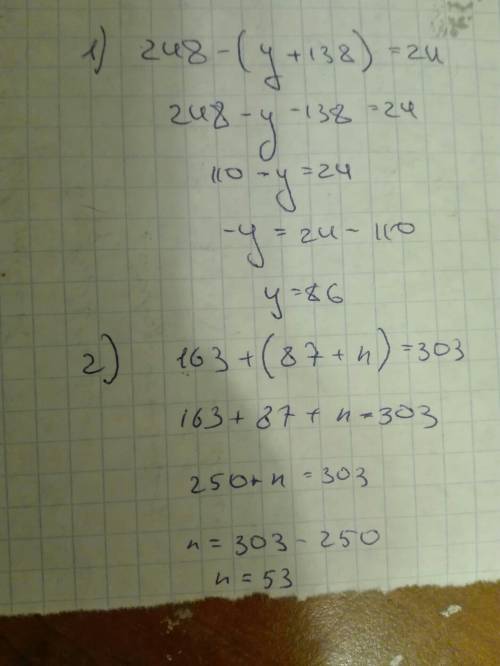 1) 248 - (y + 138) = 24
248 - y - 138 = 24
110 - y = 24
-y = 24 - 110
y = 86
2) 163 + (87 + n) = 303
163 + 87 + n = 303
250 + n = 303
n = 303 - 250
n = 53